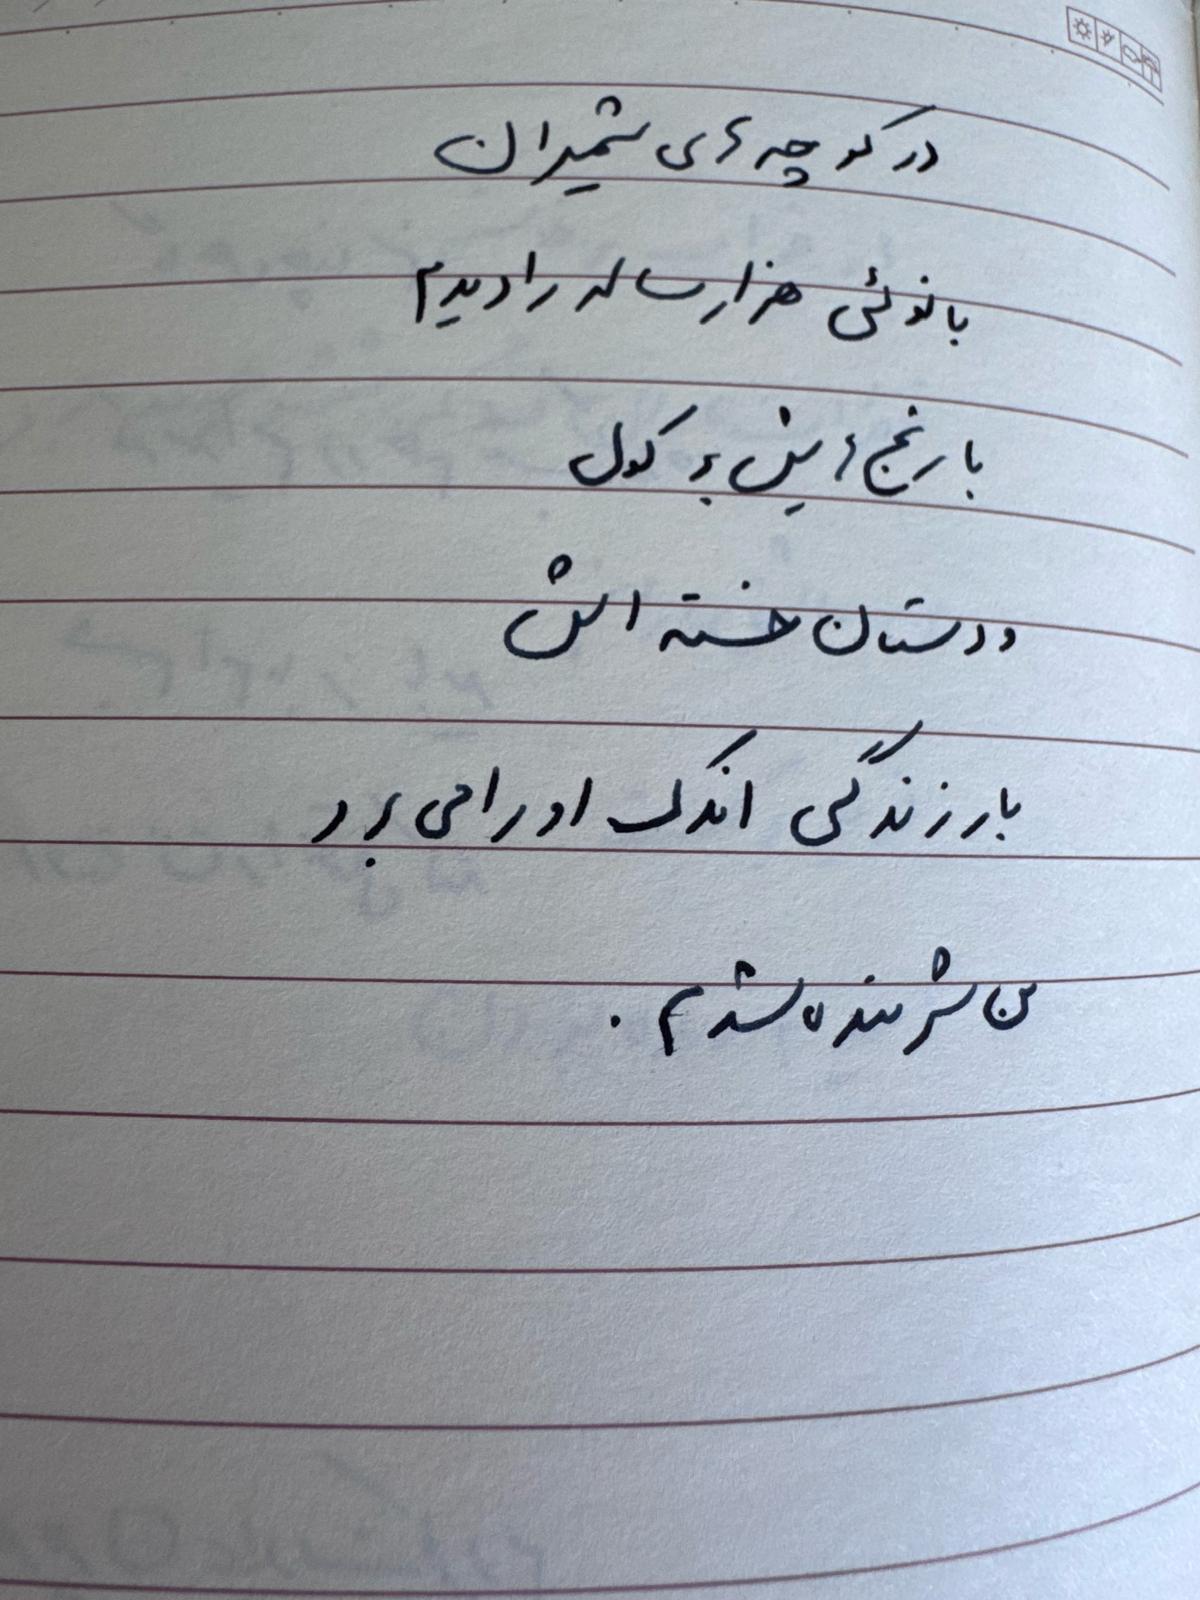 در کوچه ء ی شمیران
بانوئی هزار ساله را دیدم
با رنج ء یش بر کول
و دستان خسته اش
بار زندگی اندک او را می برد
من شرمنده شدم .